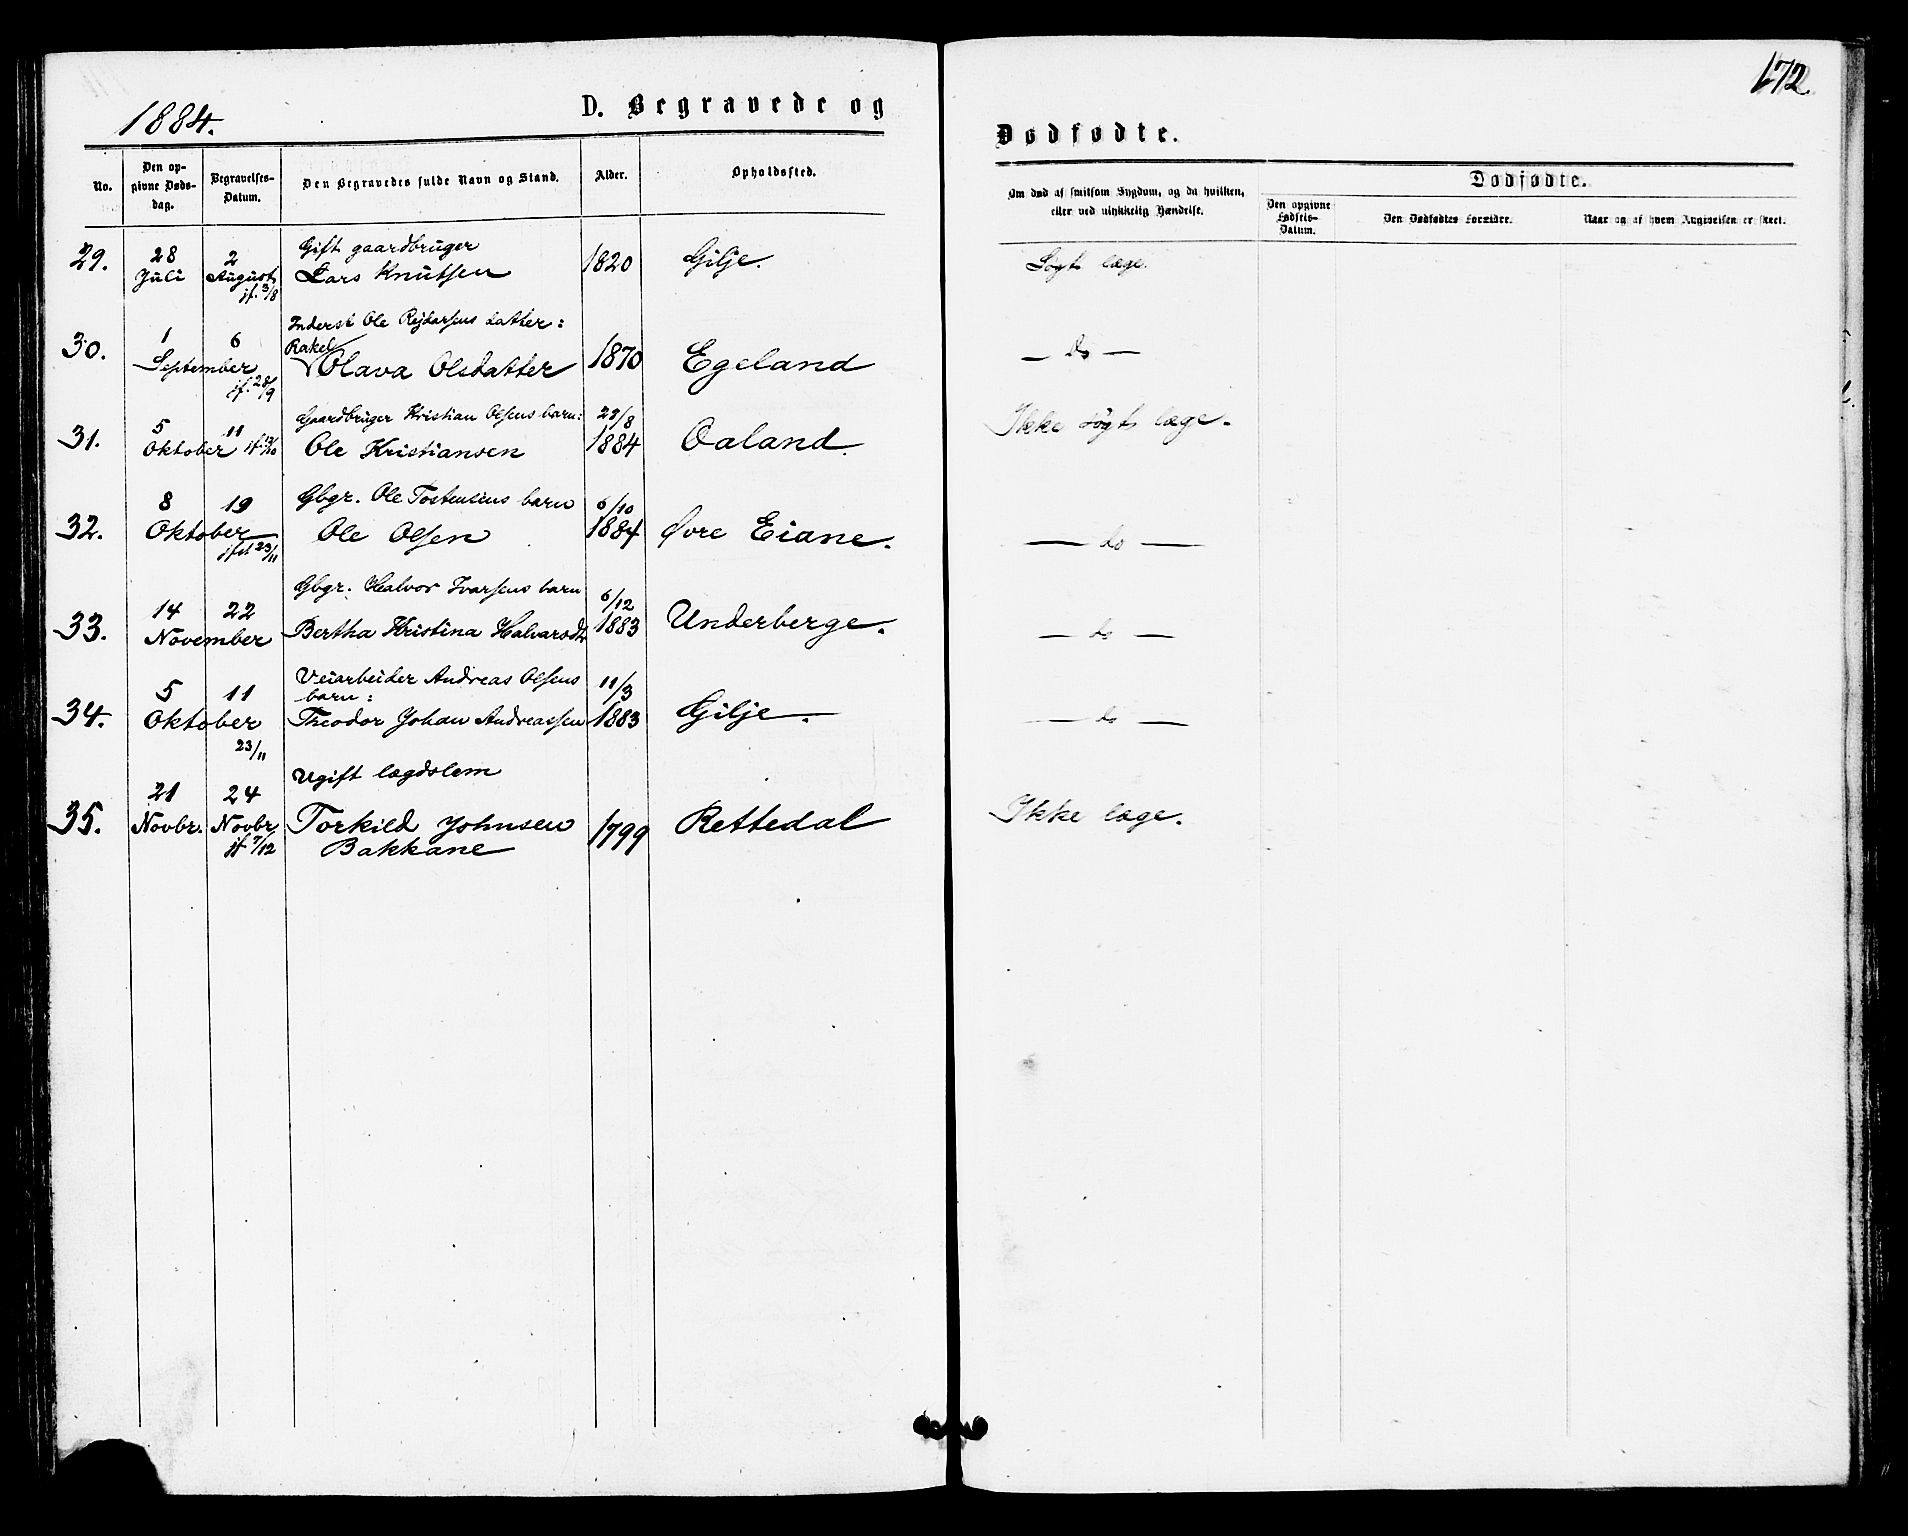 172
1884.
D. Begravede og
Dødfødte.
No.
Den op-
givne Døds-
dag.
Begravelses-
Datum.
Den Begravedes fulde Navn og Stand.
Alder.
Opholdssted.
Om død af smitsom Sygdom, og da hvilken,
eller ved ulykkelig Hændelse.
Dødfødte.
Den opgivne
Fødsels-
Datum.
Den Dødfødtes Forældre.
Naar og af hvem Angivelsen er skeet.
29.
28
Juli
2
August
jf. 3/8
Gift gaardbruger
Lars Knutsen
1820
Gilje.
Søgt læge.
30.
1
6
September
jf. 28/9
Inderst Ole Rejdarsens datter:
Rakel
Olava Olsdatter
1870
Egeland
— do —
31.
5
11
Oktober
Gaardbruger Kristian Olsens barn:
Ole Kristiansen
29/8
1884
Oaland.
Ikke søgt læge.
32.
8
19
Oktober
jfst 23/11
Gbgr. Ole Tostensens barn
Ole Olsen
6/10
1884
Øvre Eiane.
— do —
33.
14
22
November
Gbgr. Halvor Ivarsens barn
Bertha Kristina Halvarsdtr
6/12
1883
Underberge.
— do —
34.
5
11
Oktober
23/11
Veiarbeider Andreas Olsens
barn:
Theodor Johan Andreassen
11/3
1883
Gilje.
— do —
35.
21
Novbr.
24
Novbr.
jf 7/12
Ugift lægdslem
Torkild Johnsen
Bakkane
1799
Rettedal
Ikke læge.